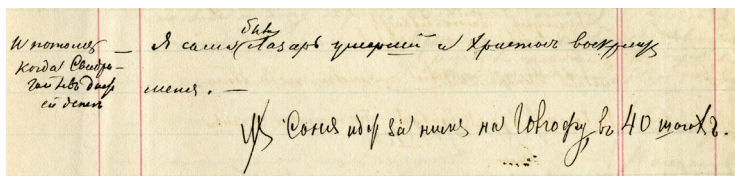 И потомъ
когда Свидри-
гайловъ даетъ
ей денегъ
— Я самъ былъ Лазарь умерший и Христосъ воскресилъ
меня. —
NB Соня идетъ за нимъ на Голгофу, въ 40 шагахъ.